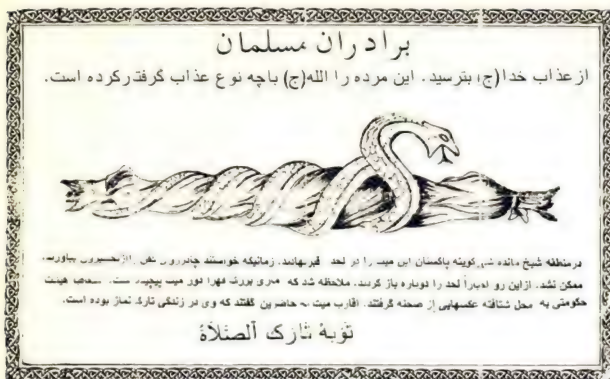 برادران مسلمان
از عذاب خدا (ج) بترسید. این مرده را الله (ج) باچه نوع عذاب گرفتار کرده است.
درمنطقه شیخ مانده شهر کویته پاکستان این میت را در لحد قبر نهادند. زمانیکه خواستند چادر روی نعش را
ممکن نشد. ازاین رو اجباراً لحد را دوباره باز کردند. ملاحظه شد که ماری بزرگ قهرا دور میت پیچیده است. هیئت
حکومتی به محل شتافته عکسهایی از صحنه گرفتند. اقارب میت به حاضرین گفتند که وی در زندگی تارک نماز بوده است.
توبة تارك الصلاة